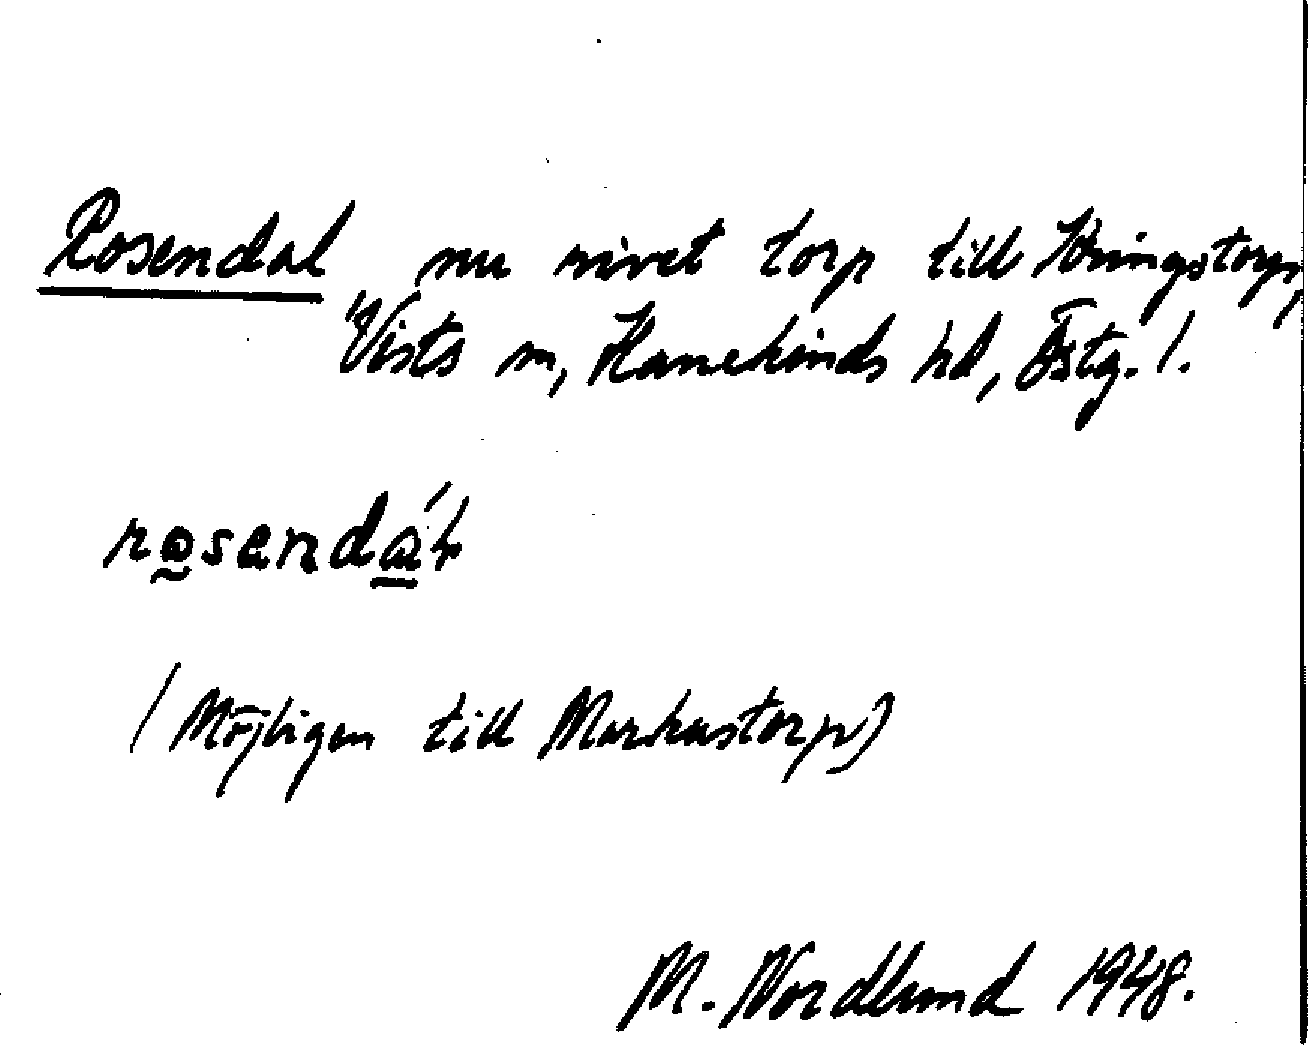 Rosendal nu rivet torp till Kringstorp,
Vists sn, Hanekinds hd, Östg. l.
rosendál
(Möjligen till Markustorp)
M. Nordlund 1948.